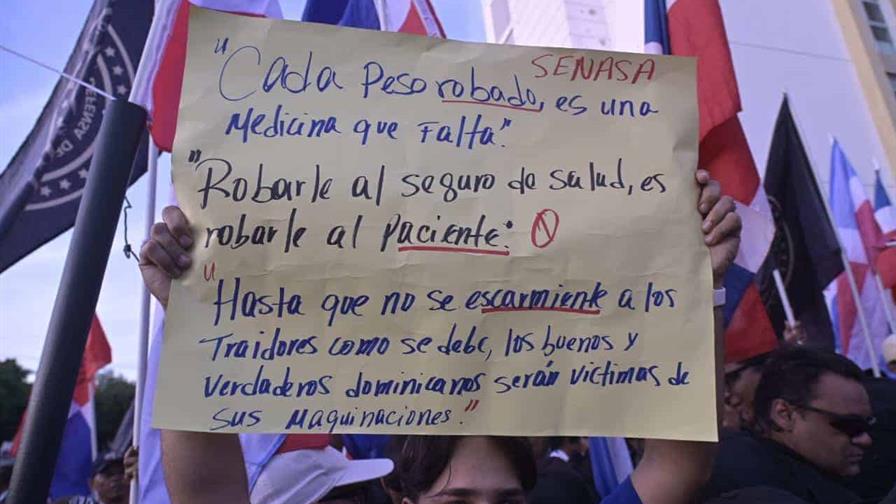 "Cada Peso robado, es una
SENASA
Medicina que Falta".
"Robarle al seguro de salud, es
robarle al paciente: N
"Hasta que no se escarmiente a los
Traidores como se debe, los buenos y
Verdaderos dominicanos serán victimas de
sus Maquinaciones."
DEFENSA DE